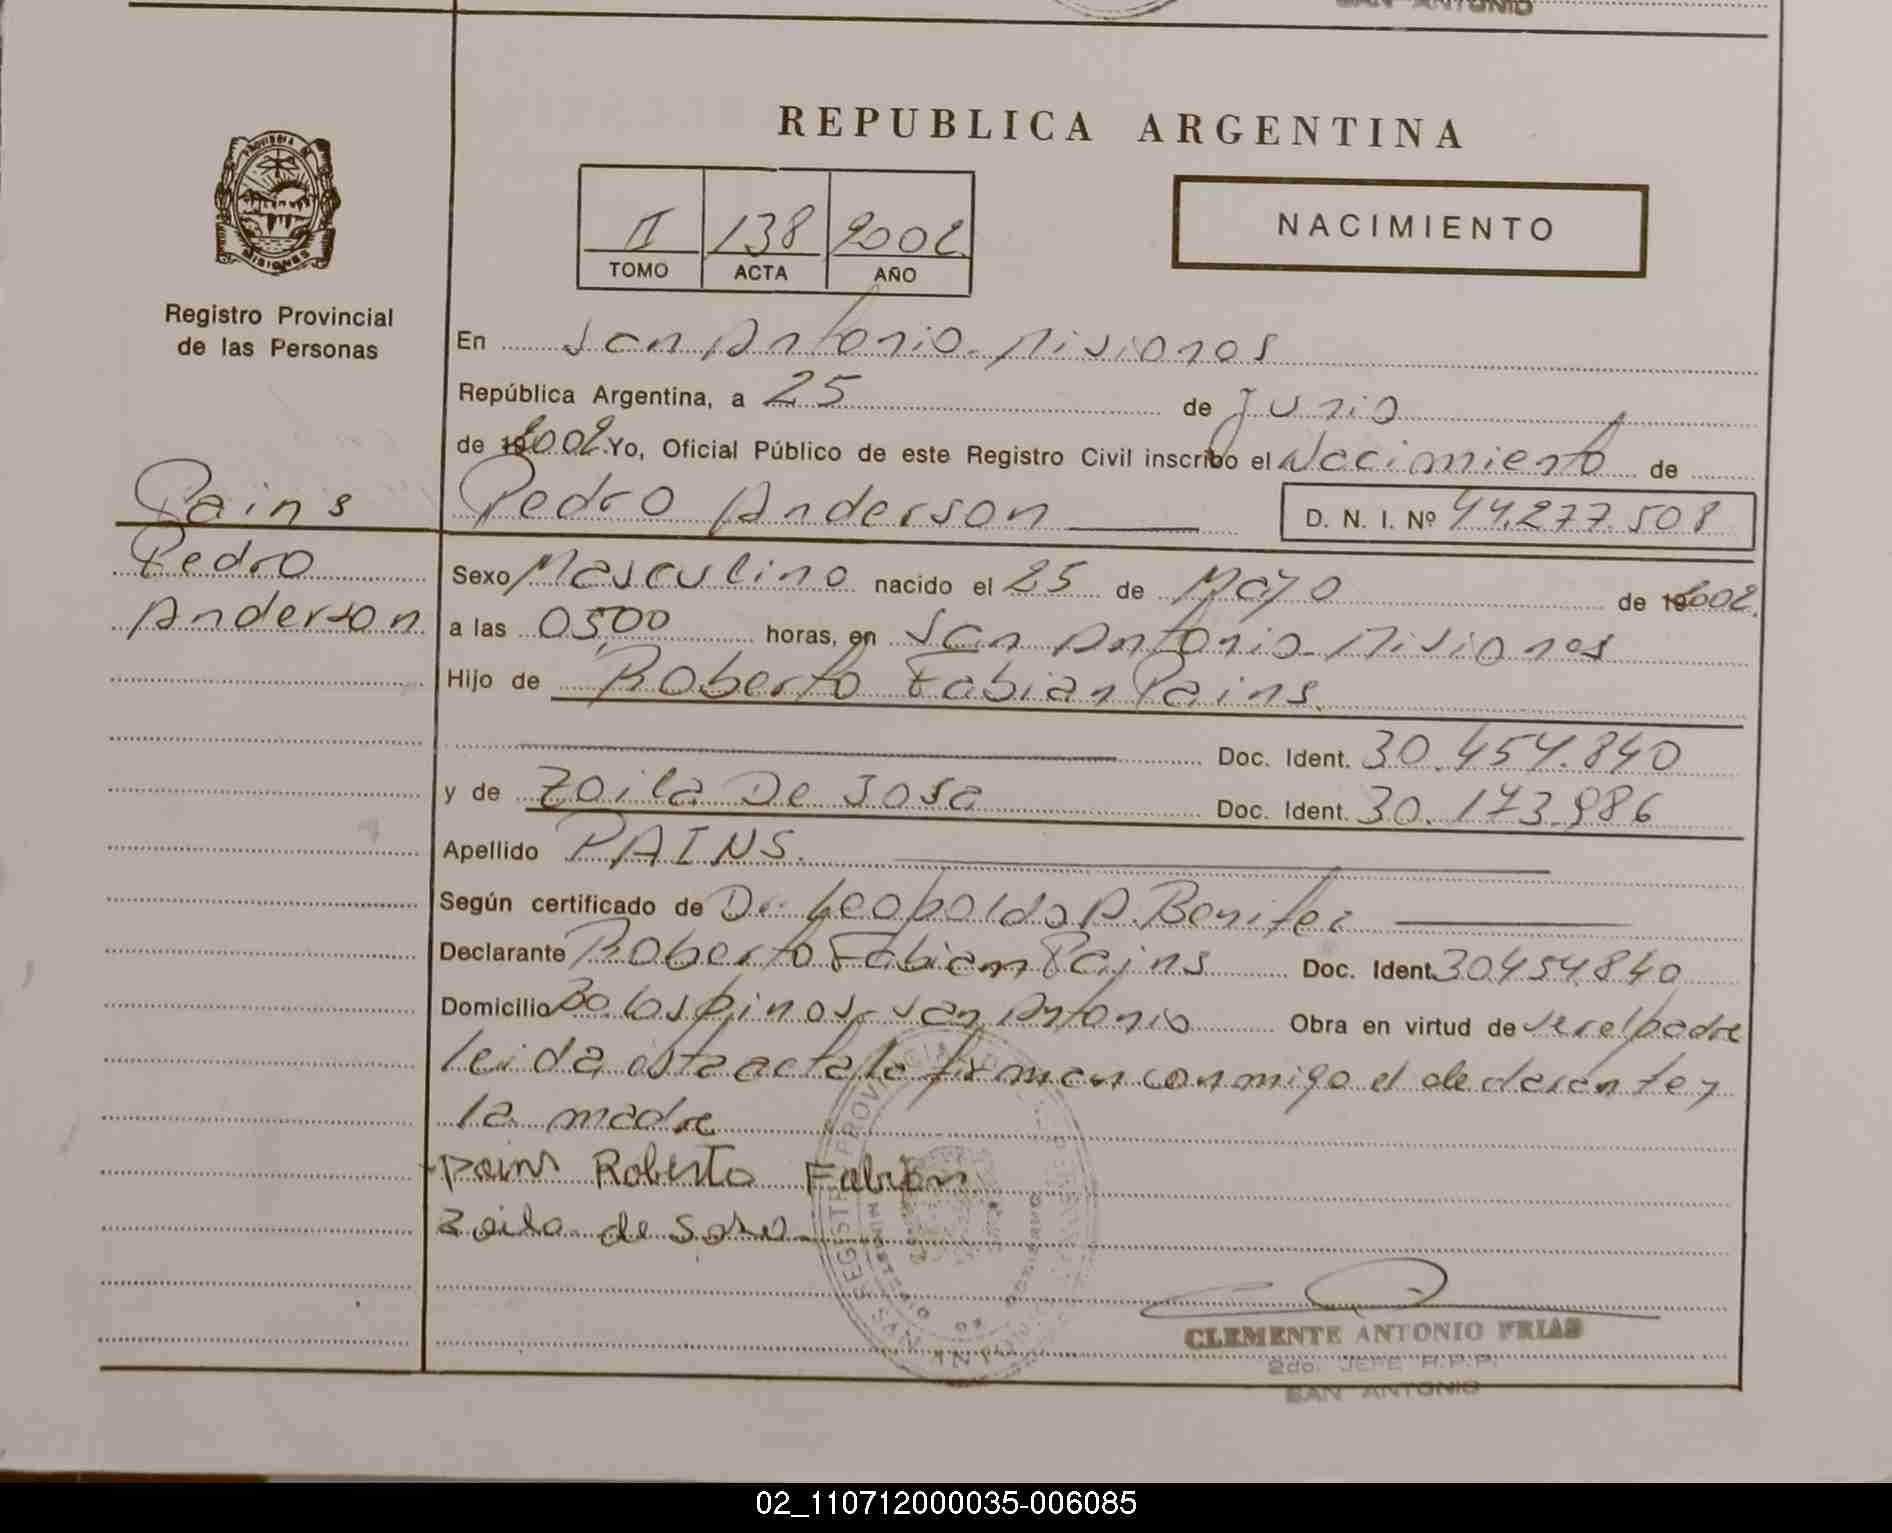 SAN ANTONIO
REPUBLICA ARGENTINA
PROVINCIA DE
MISIONES
Registro Provincial
de las Personas
II 138 2002
TOMO ACTA AÑO
NACIMIENTO
En San Antonio. Misiones
República Argentina, a 25 de Junio
de 2002. Yo, Oficial Público de este Registro Civil inscribo el Nacimiento de
Pains Pedro Anderson D. N. I. Nº 44.277.508
Pedro
Anderson
Sexo Masculino nacido el 25 de Mayo de 2002.
a las 05,00 horas, en San Antonio. Misiones
Hijo de Roberto Fabian Pains.
Doc. Ident. 30.454.840
y de Zoila De Sosa Doc. Ident. 30.173.986
Apellido PAINS.
Según certificado de Dr. Leopoldo A. Benitez
Declarante Roberto Fabian Pains Doc. Ident. 30454.840
Domicilio Bo. Los pinos. San Antonio Obra en virtud de ser el padre
leida esta acta la firman conmigo el declarante y
la madre
Pains Roberto Fabian
Zoila de Sosa
CLEMENTE ANTONIO FRIAS
2do. JEFE R.P.P.
SAN ANTONIO
02_110712000035-006085